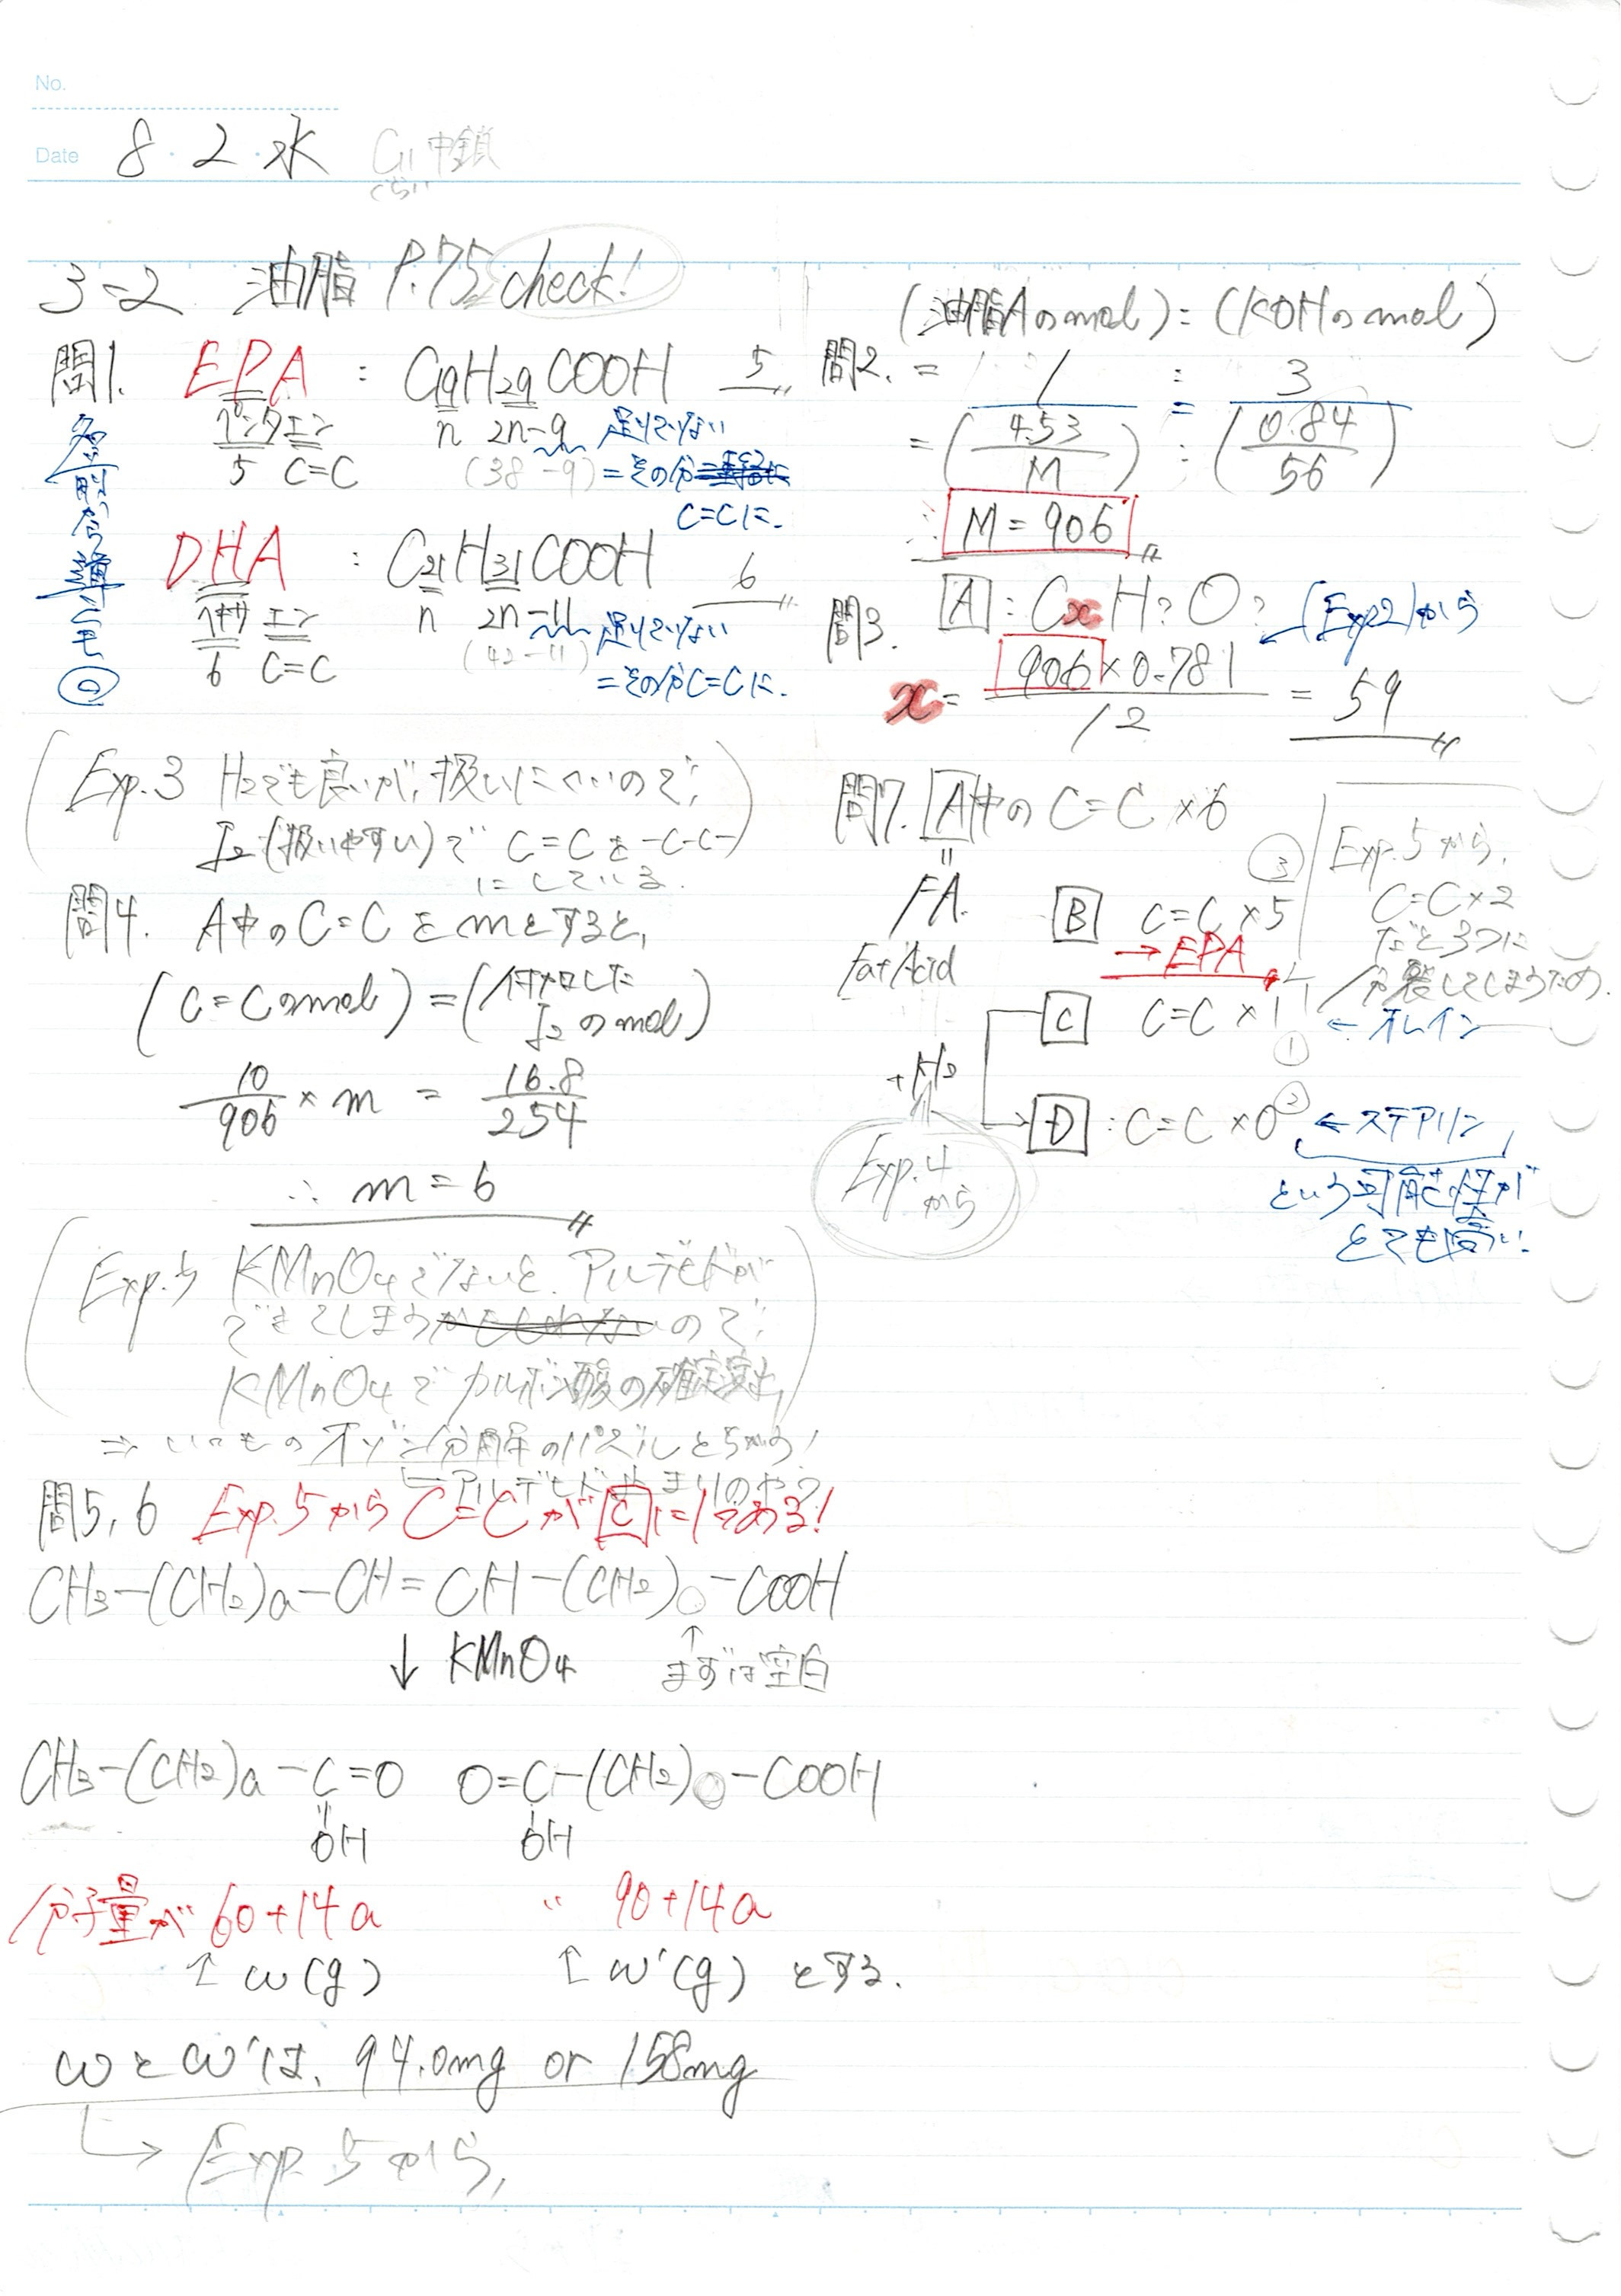 No.
Date 8・2・水 C11 中鎖
ぐらい
3-2 油脂 P.75 check!
問1. EPA : C19H29COOH 5
ペンタエン n 2n-9 足りてない
5 C=C (38-9) = その分
C=Cに.
名前から導くも
DHA : C21H31COOH 6
ヘキサエン n 2n-11 足りてない
6 C=C (42-11) = その分C=Cに.
(Exp.3 H2でも良いが、扱いにくいので、
I2(扱いやすい)で C=Cを -C-C-
にしている.)
問4. A中のC=Cをmとすると,
(C=Cのmol) = (付加した
I2のmol)
10/906 × m = 16.8/254
∴ m = 6
(Exp.5 KMnO4でないと、アルデヒドが
できてしまうかもしれないので、
KMnO4でカルボン酸の確定演出)
⇒ いつものオゾン分解のパズルとちがう!
アルデヒド止まりのやつ
問5,6 Exp.5から C=Cが C に1つある!
CH3-(CH2)a-CH=CH-(CH2)○-COOH
↓ KMnO4 ↑まずは空白
CH3-(CH2)a-C=O O=C-(CH2)○-COOH
OH OH
分子量が 60+14a 〃 90+14a
↑ w(g) ↑ w'(g) とする.
wとw'は、94.0mg or 158mg
→ Exp.5から,
(油脂Aのmol) : (KOHのmol)
問2. = 1 : 3
= (4.53/M) : (0.84/56)
∴ M = 906
問3. A : CxH?O? (Exp2)から
x = 906×0.781/12 = 59
問7. A中の C=C ×6
FA.
Fat Acid
B C=C ×5 ③
→ EPA
C C=C ×1 ← オレイン
①
+H2
D : C=C ×0 ② ← ステアリン
という可能性が
とても高い.
Exp.4
から
Exp.5から,
C=C×2
だと3つに
分裂してしまうため.